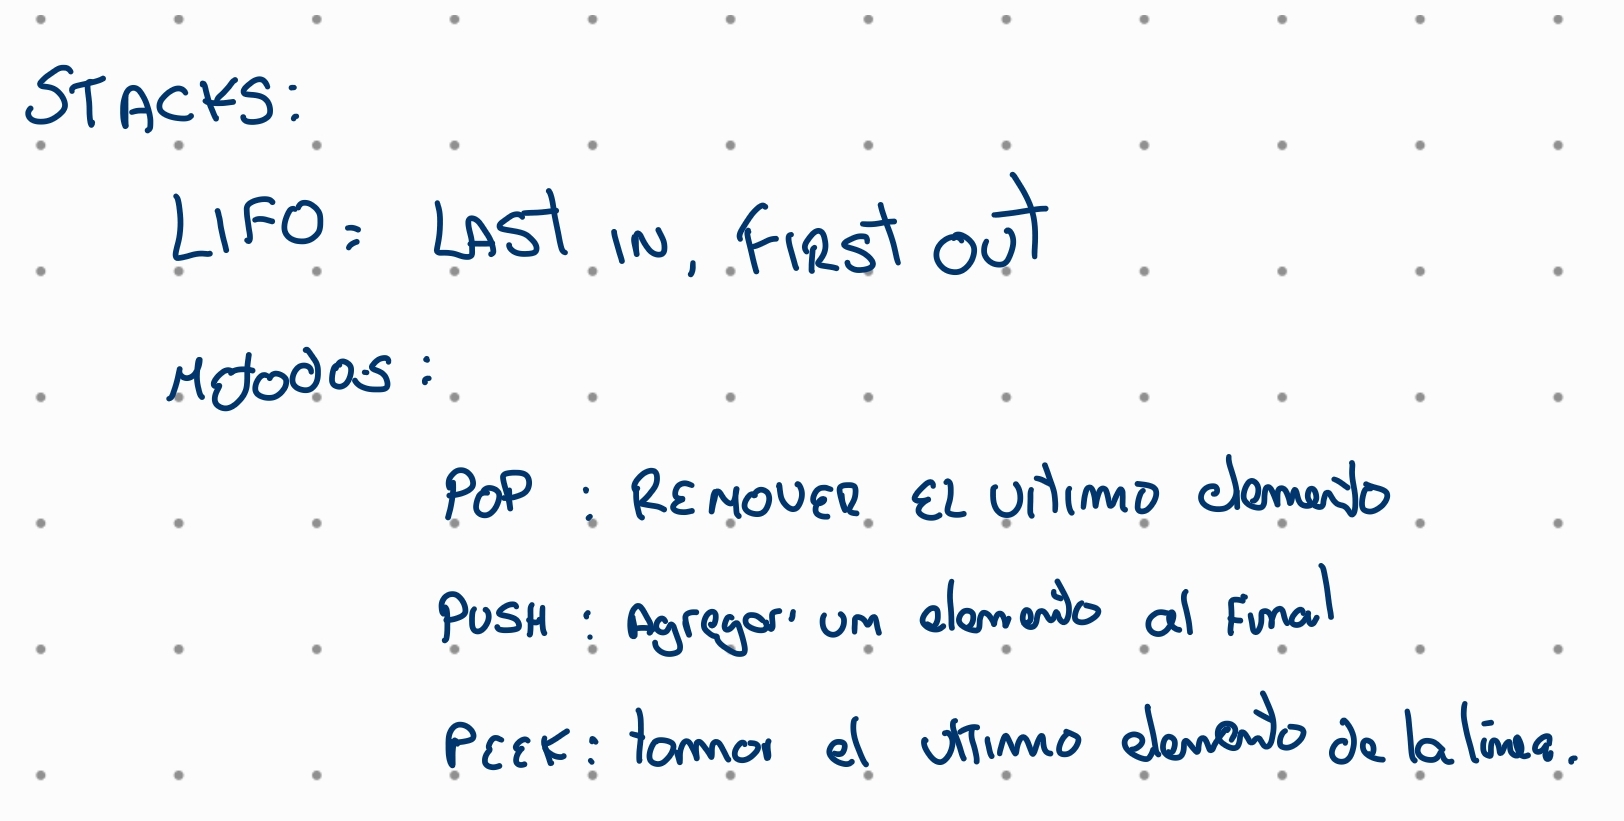 STACKS:
LIFO: LAST IN, FIRST OUT
Metodos:
POP : REMOVER EL ULTIMO elemento
PUSH : Agregar un elemento al Final
PEEK: tomar el ultimo elemento de la linea.